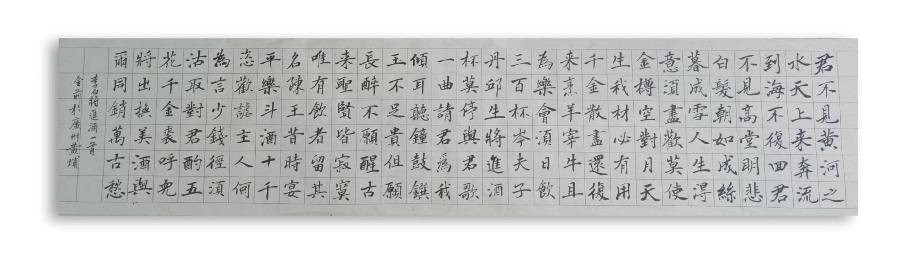 君不見黃河之
水天上来奔流
到海不復回君
不見高堂明悲
白髮朝如成絲
暮成雪人生得
意須盡歡莫使
金樽空對月天
生我材必有用
千金散盡還復
来烹羊宰牛且
為樂會須日飲
三百杯岑夫子
丹邱生將進酒
杯莫停與君歌
一曲請君為我
傾耳聽鐘鼓饌
玉不足貴但願
長醉不願醒古
来聖賢皆寂寞
唯有飲者留其
名陳王昔時宴
平樂斗酒十千
恣歡謔主人何
為言少錢徑須
沽取對君酌五
花千金裘呼兒
將出換美酒與
爾同銷萬古愁
李白將進酒一首
金前於廣州黃埔